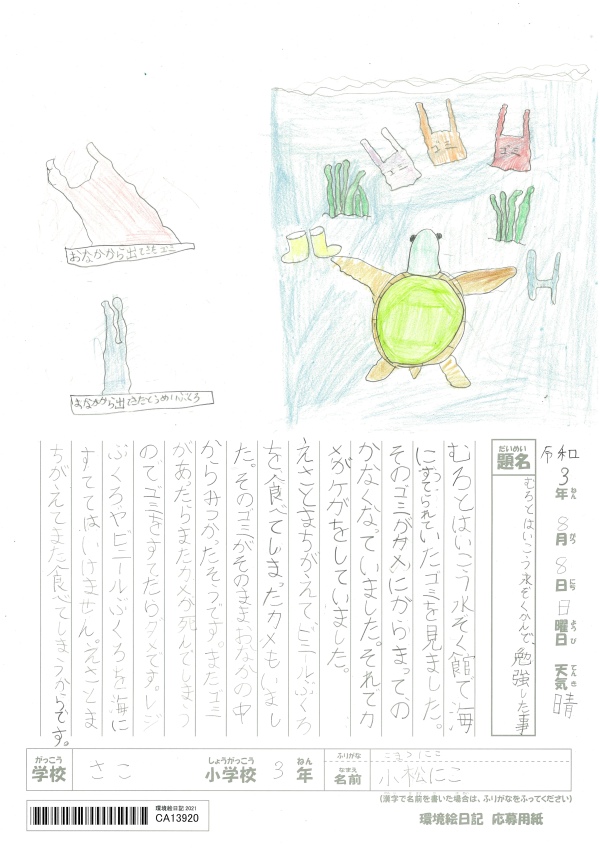 ゴミ
ゴミ
ゴミ
おなかから出てきたゴミ
おなかから出てきたとうめいぶくろ
令和3年8月8日日曜日天気晴
ねん
がつ
にち
ようび
てんき
だいめい
題名
むろとはいこう水ぞくかんで、勉強した事
むろとはいこう水ぞく館で海
にすてられていたゴミを見ました。
そのゴミがカメにからまって、の
かなくなっていました。それでカ
メがケガをしていました。
えさとまちがえてビニールぶくろ
を、食べてしまったカメもいまし
た。そのゴミがそのままおなかの中
からみつかったそうです。またゴミ
があったらまたカメが死んでしまう
のでゴミをすてたらダメです。レジ
ぶくろやビニールぶくろを海に
すててはいけません。えさとま
ちがえてまた食べてしまうからです。
がっこう
学校
さこ
しょうがっこう
小学校
3
ねん
年
ふりがな
こまつ にこ
なまえ
名前
小松にこ
(漢字で名前を書いた場合は、ふりがなをふってください)
環境絵日記 2021
CA13920
環境絵日記 応募用紙